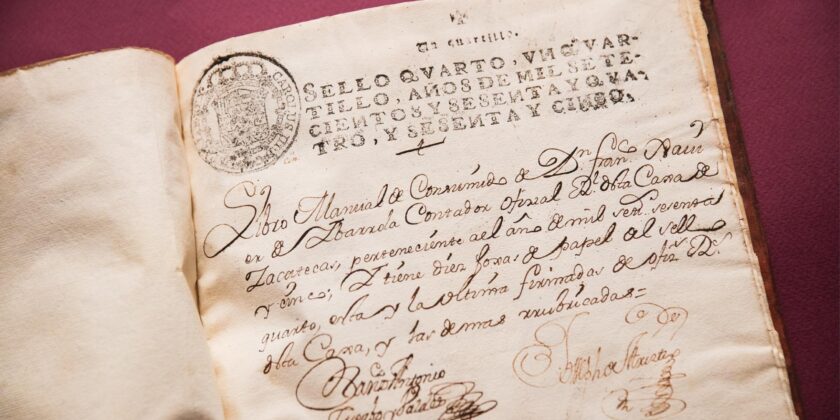 Un quartillo.
SELLO QVARTO, VN QVAR-
TILLO, AÑOS DE MIL SETE-
CIENTOS Y SESENTA Y QVA-
TRO, Y SESENTA Y CINCO.
CAROLUS III
Libro Manual de Consumido de Dn. franco. Xavi
er de Ibarrola Contador ofizial Rl. desta Caxa de
Zacatecas, perteneciente a el año de mil sets. sesenta
y cinco; Y tiene diez foxas de papel del sello
quarto, esta y la vltima firmadas de ofizs. Rs.
desta Caxa, y las demas rrubricadas=
Antonio